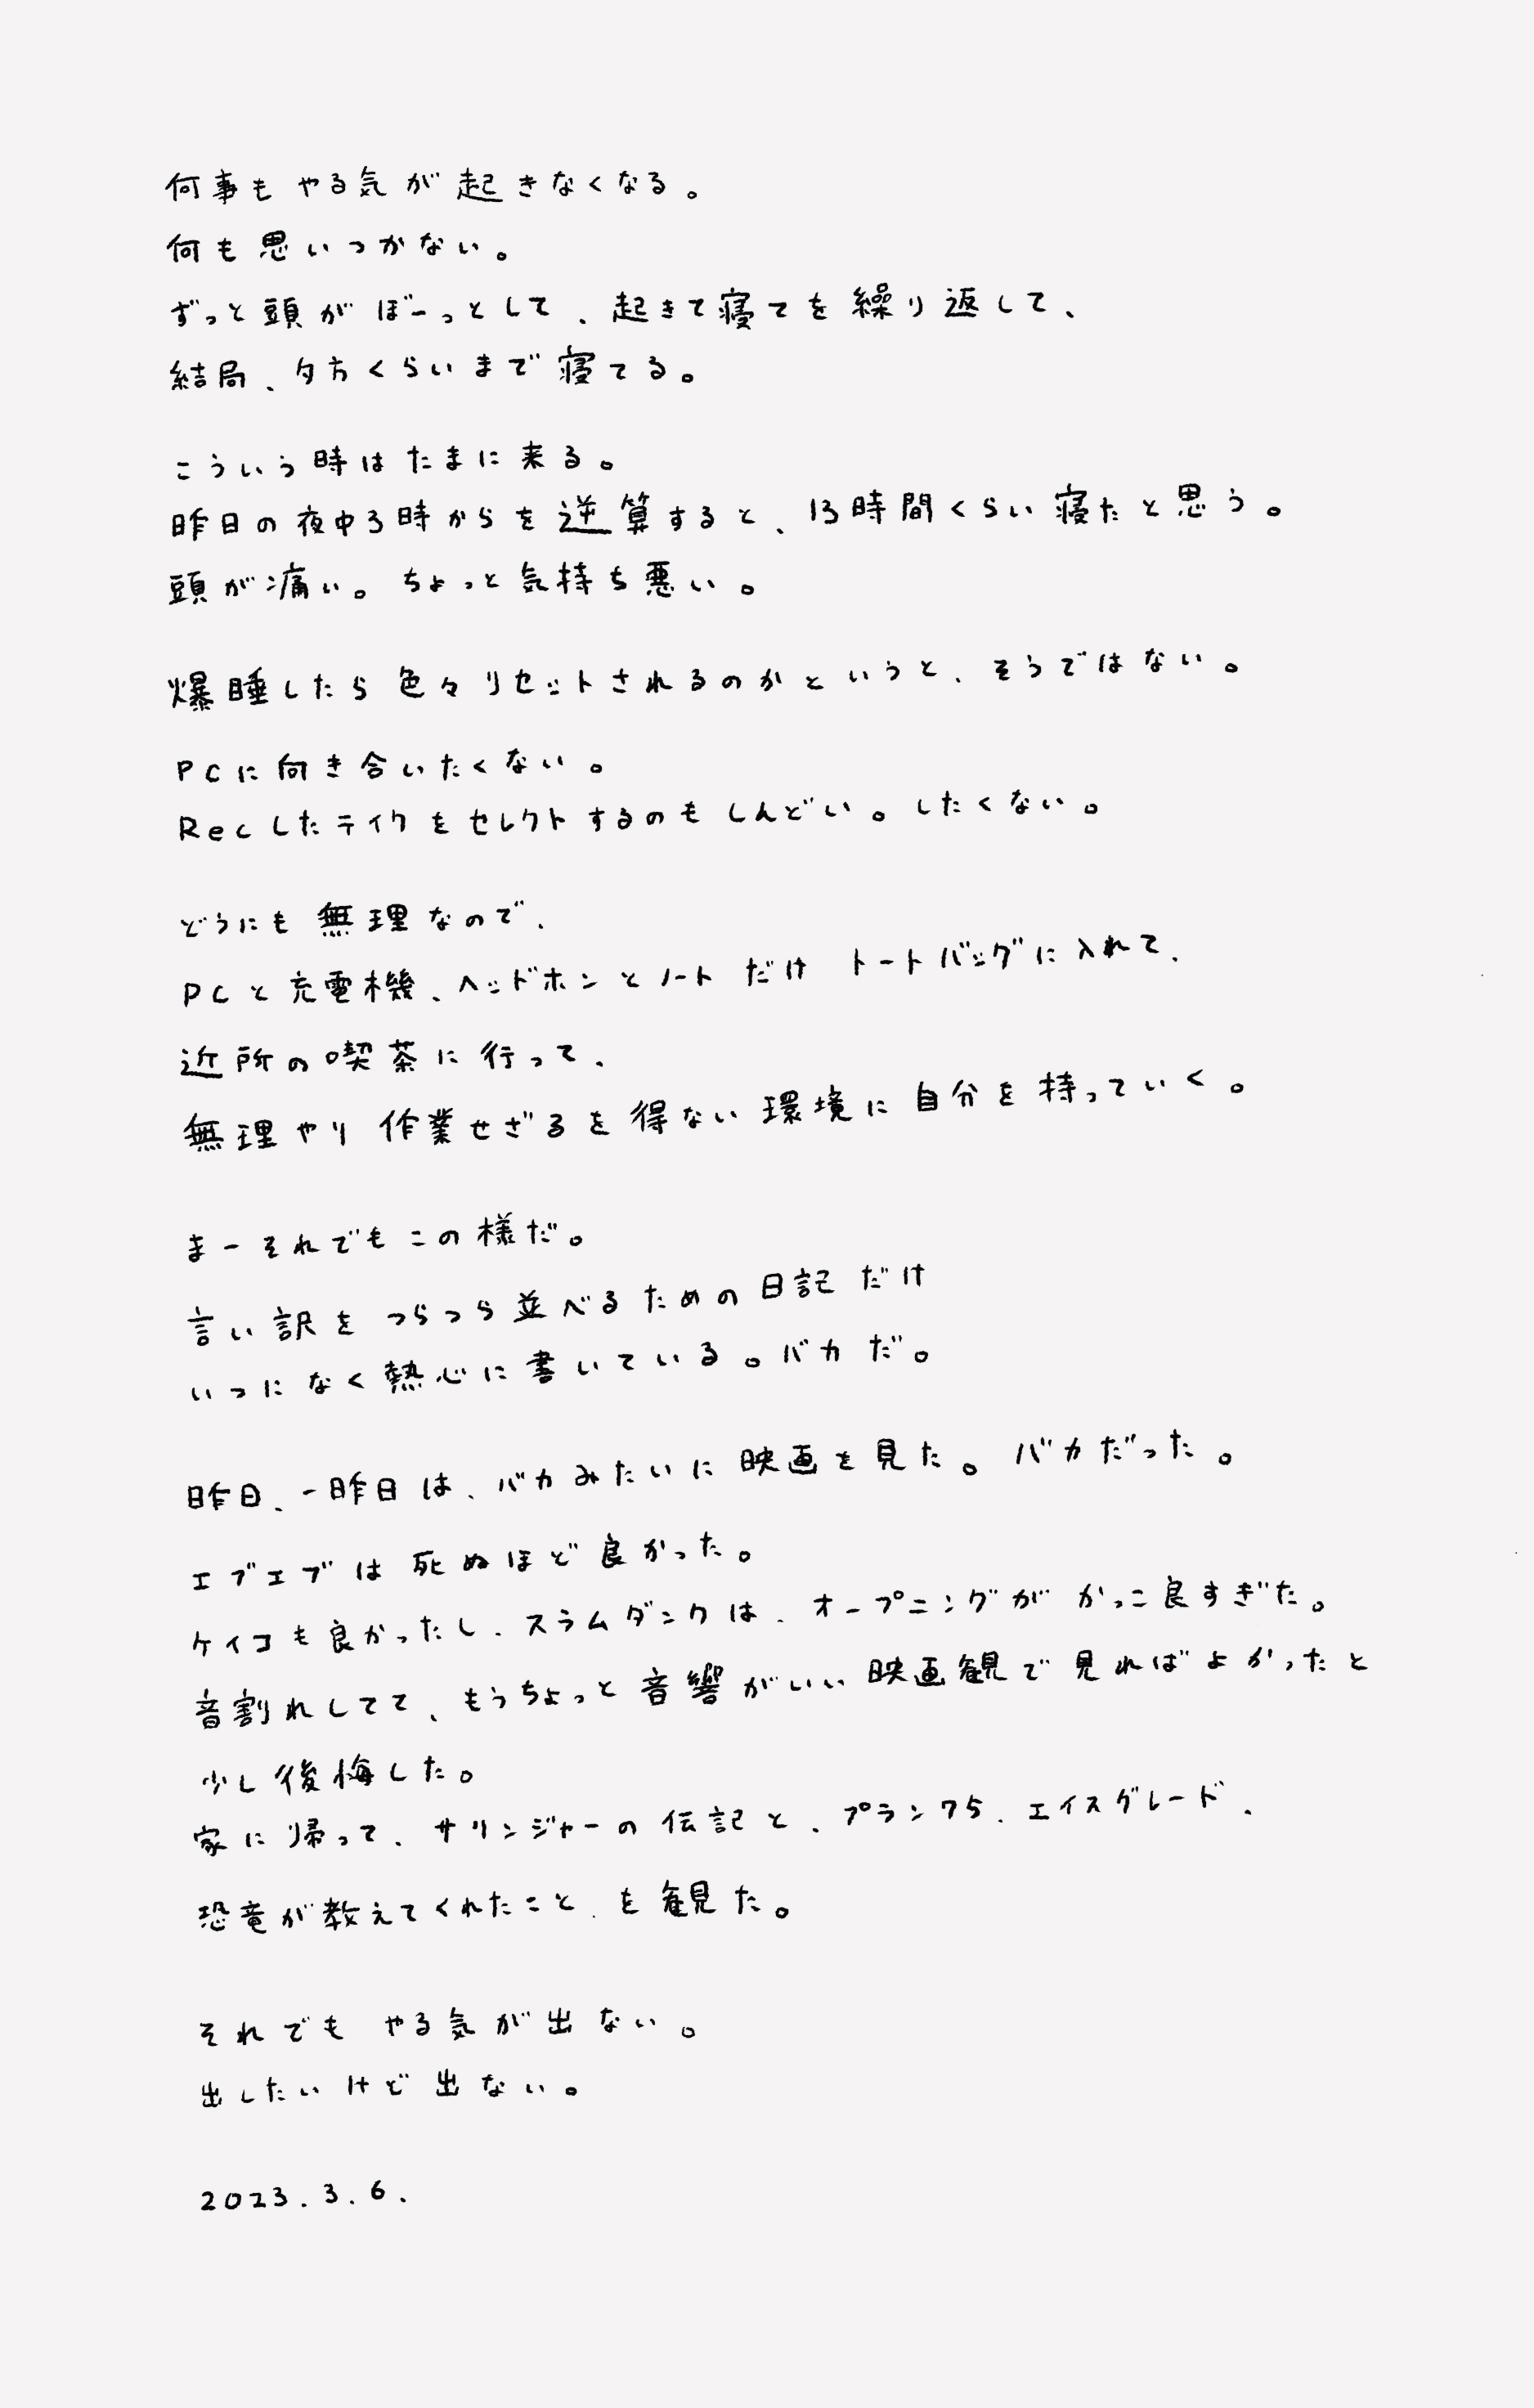 何事もやる気が起きなくなる。
何も思いつかない。
ずっと頭がぼーっとして、起きて寝てを繰り返して、
結局、夕方くらいまで寝てる。
こういう時はたまに来る。
昨日の夜中3時からを逆算すると、13時間くらい寝たと思う。
頭が痛い。ちょっと気持ち悪い。
爆睡したら色々リセットされるのかというと、そうではない。
PCに向き合いたくない。
Recしたテイクをセレクトするのもしんどい。したくない。
どうにも無理なので、
PCと充電機、ヘッドホンとノートだけトートバッグに入れて、
近所の喫茶に行って、
無理やり作業せざるを得ない環境に自分を持っていく。
まーそれでもこの様だ。
言い訳をつらつら並べるための日記だけ
いつになく熱心に書いている。バカだ。
昨日、一昨日は、バカみたいに映画を見た。バカだった。
エブエブは死ぬほど良かった。
ケイコも良かったし、スラムダンクは、オープニングがかっこ良すぎた。
音割れしてて、もうちょっと音響がいい映画観で見ればよかったと
少し後悔した。
家に帰って、サリンジャーの伝記と、プラン75、エイスグレード、
恐竜が教えてくれたこと、を観た。
それでもやる気が出ない。
出したいけど出ない。
2023.3.6.